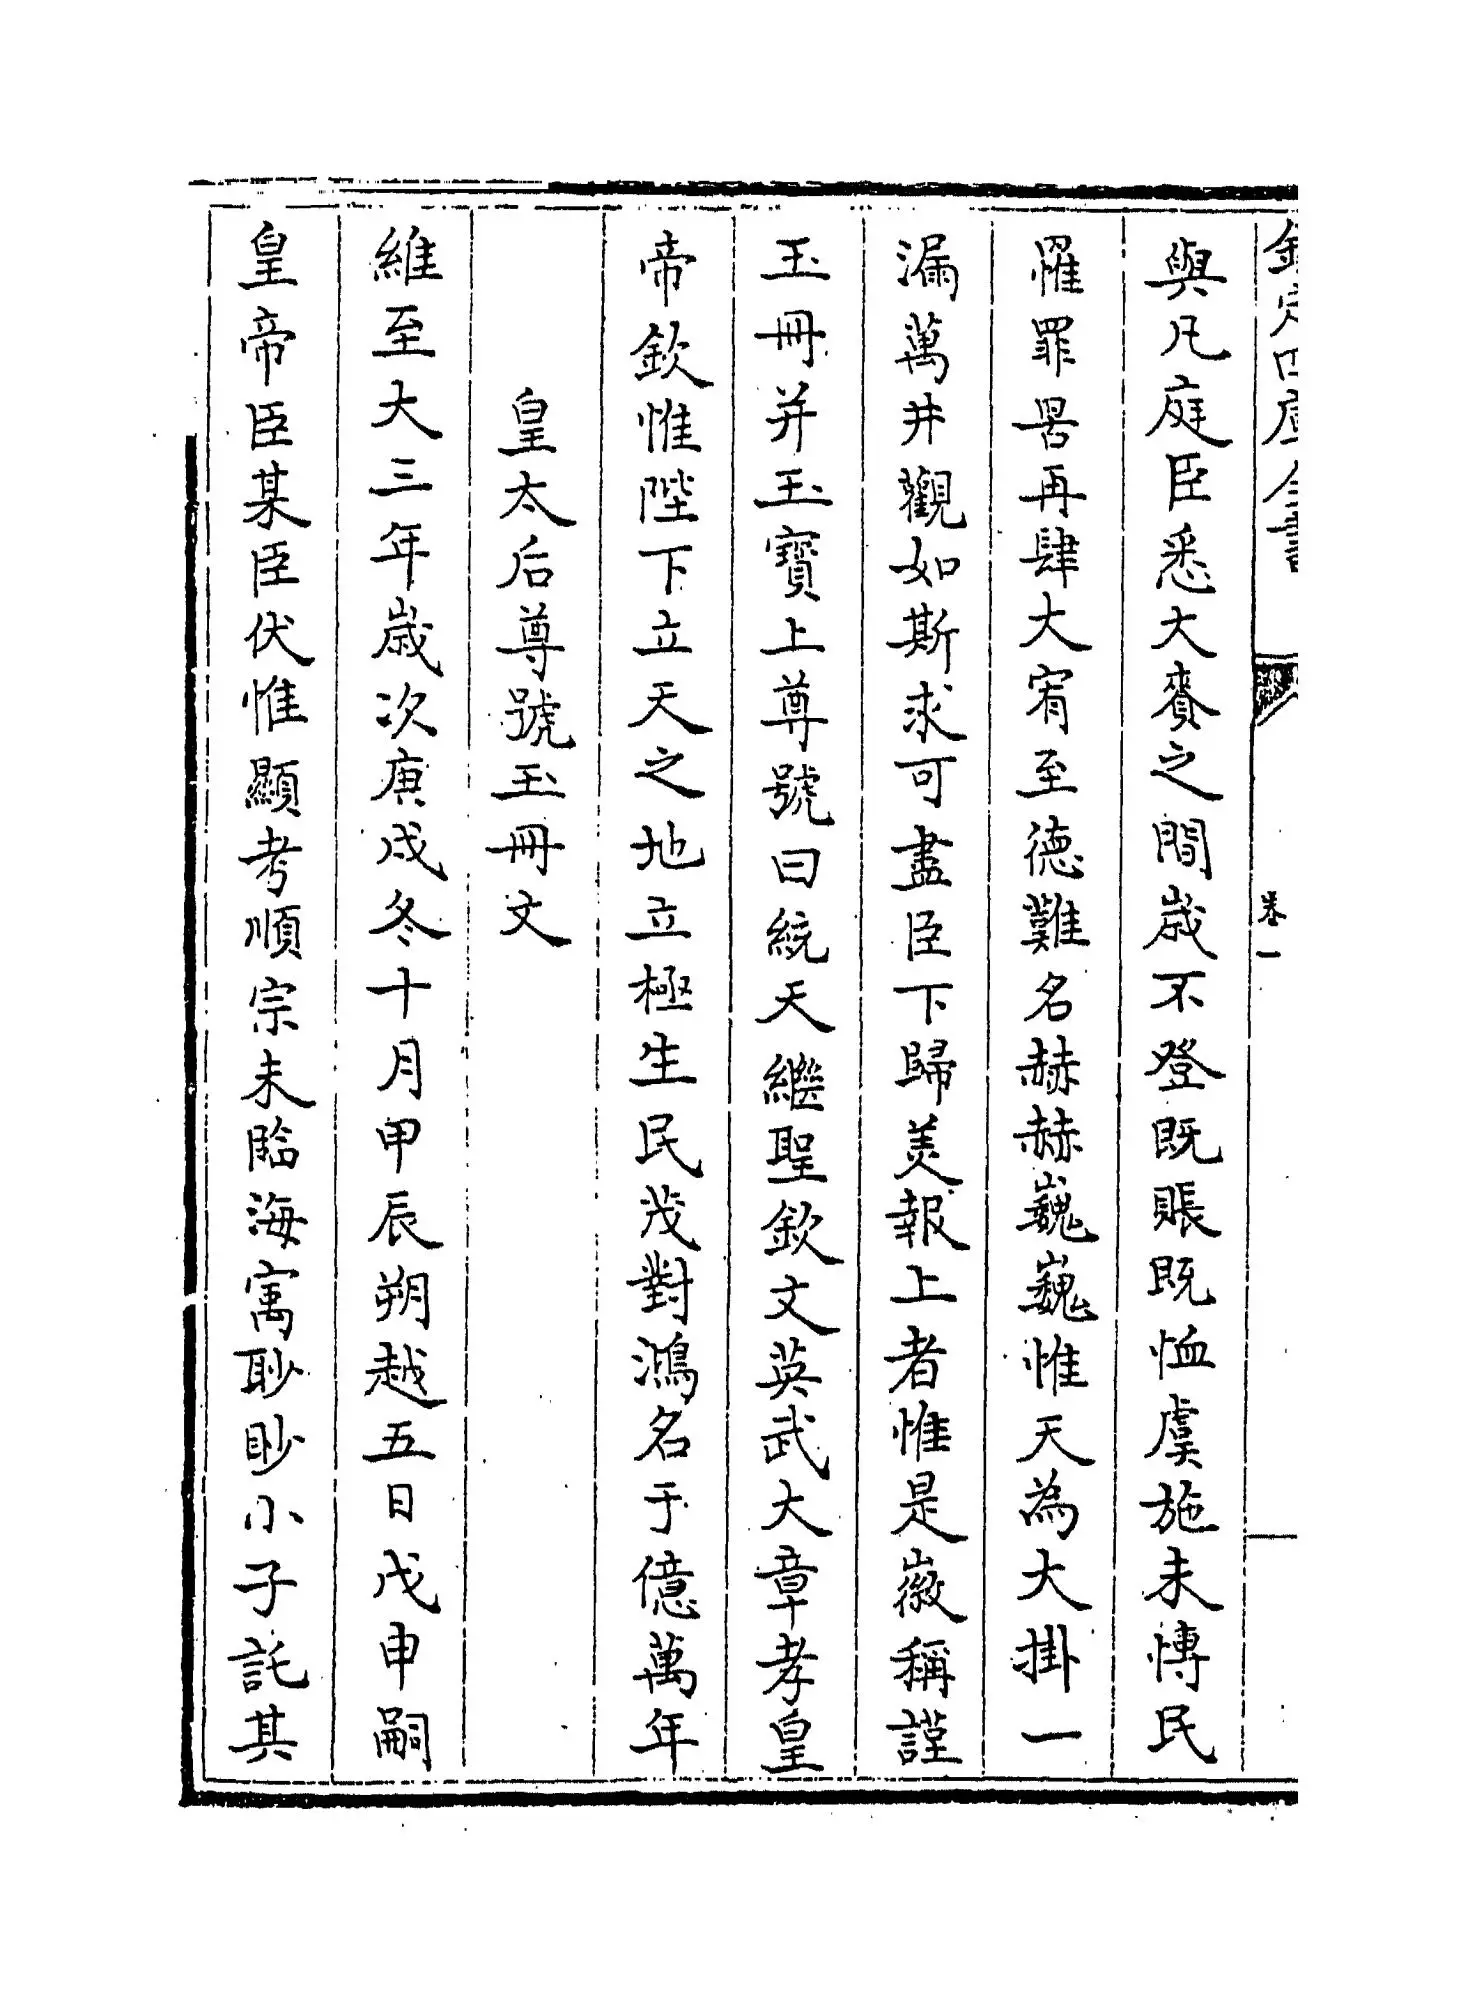 欽定四庫全書
卷一
與凡庭臣悉大賚之間歲不登既賬既恤虞施未慱民
罹罪罟再肆大宥至德難名赫赫巍巍惟天為大掛一
漏萬井觀如斯求可盡臣下歸美報上者惟是徽稱謹
玉冊并玉寶上尊號曰統天繼聖欽文英武大章孝皇
帝欽惟陛下立天之地立極生民茂對鴻名于億萬年
皇太后尊號玉冊文
維至大三年歲次庚戌冬十月甲辰朔越五日戊申嗣
皇帝臣某臣伏惟顯考順宗未臨海寓眇眇小子託其